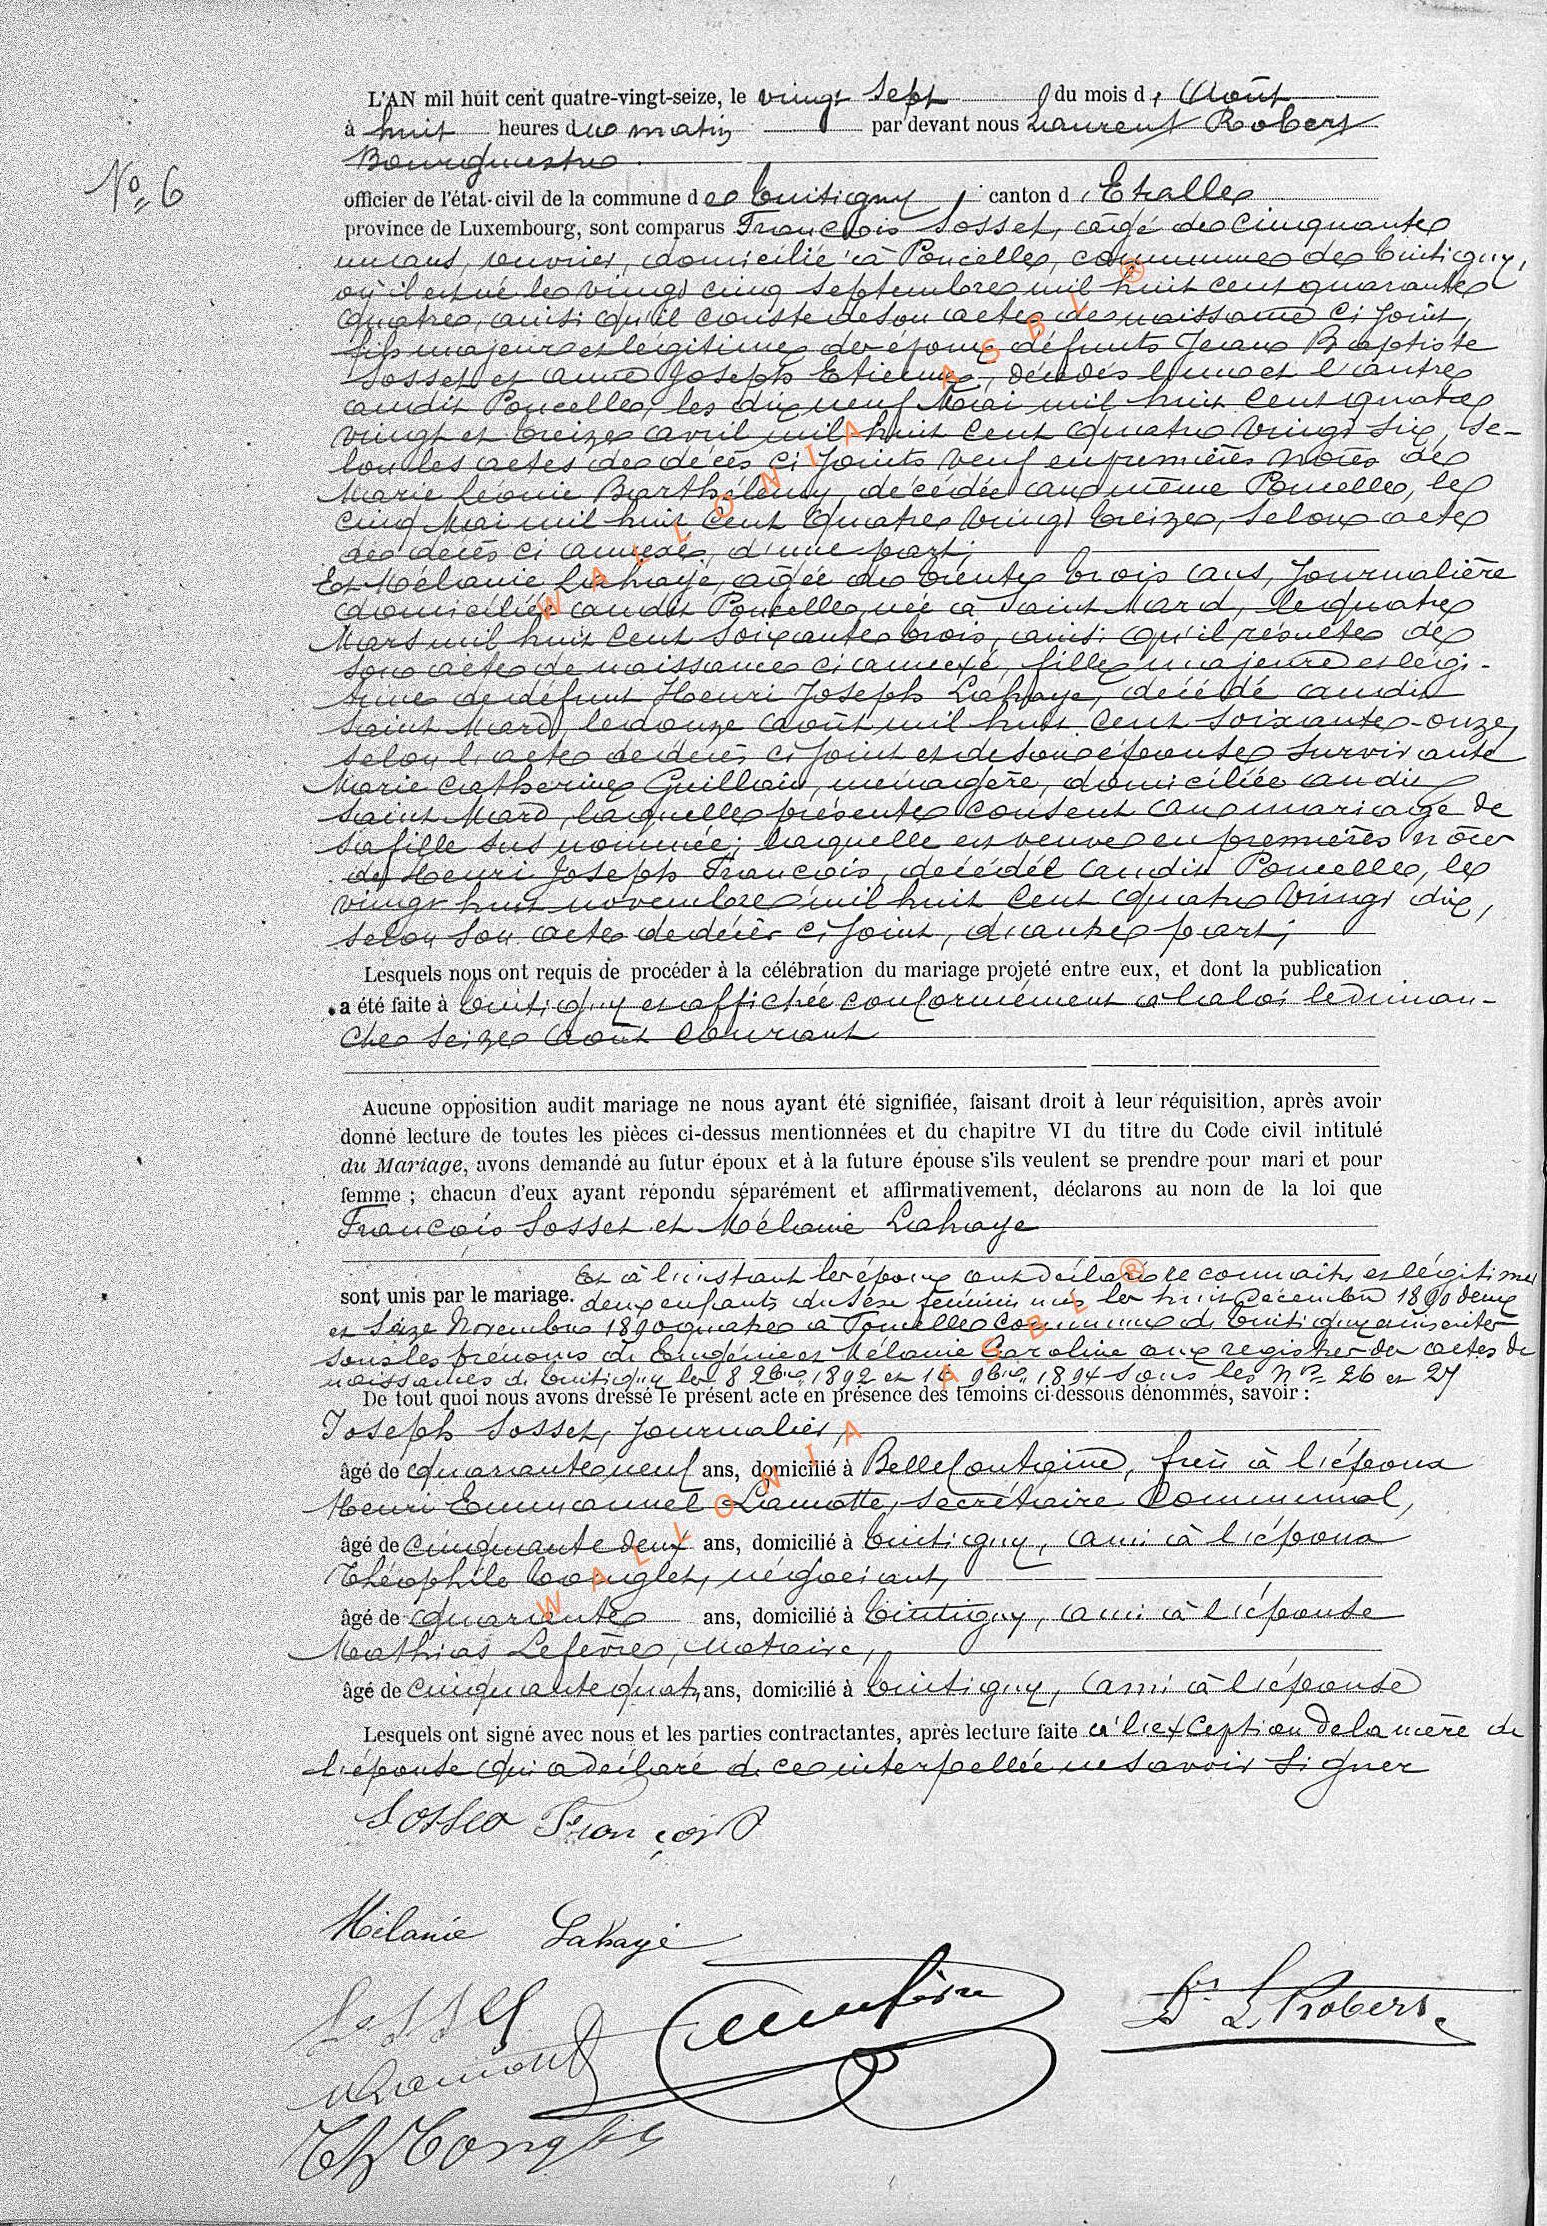 L'AN mil huit cent quatre-vingt-seize, le vingt sept du mois d' Août
à huit heures du matin par devant nous Laurent Robert
Bourgmestre
N° 6
officier de l'état-civil de la commune de Tintigny canton d' Etalle
province de Luxembourg, sont comparus François Sosset, âgé de cinquante
un ans, ouvrier, domicilié à Poncelle, commune de Tintigny,
où il est né le vingt cinq septembre mil huit cent quarante
quatre, ainsi qu'il conste de son acte de naissance ci joint,
fils majeur et legitime des epoux défunts Jean Baptiste
Sosset et Anne Joseph Etienne, décédés l'un et l'autre
audit Poncelle, les dix neuf Mai mil huit cent quatre
vingt et treize avril mil huit cent quatre vingt six, se-
lon les actes de décès ci joints veuf en premières noces de
Marie Léonie Barthélemy, décédée au même Poncelle, le
cinq Mai mil huit cent quatre vingt treize, selon acte
de decès ci annexé, d'une part;
Et Mélanie Lahaye, âgée de trente trois ans, Journalière
domiciliée audit Poncelle, née à Saint Mard, le quatre
Mars mil huit cent soixante trois, ainsi qu'il résulte de
son acte de naissance ci annexé, fille majeure et légi-
time de defunt Henri Joseph Lahaye, décédé audit
Saint Mard, le douze août mil huit cent soixante-onze,
selon l'acte de décès ci joint et de son épouse survivante
Marie Catherine Guillain, ménagère, domiciliée audit
Saint Mard, laquelle présente consent au mariage de
sa fille sus nommée; laquelle est veuve en premières noces
de Henri Joseph François, décédé audit Poncelle, le
vingt huit novembre mil huit cent quatre vingt dix,
selon son acte de décès ci joint, d'autre part;
Lesquels nous ont requis de procéder à la célébration du mariage projeté entre eux, et dont la publication
a été faite à Tintigny et affichée conformément à la loi le diman-
che seize Août courant
Aucune opposition audit mariage ne nous ayant été signifiée, faisant droit à leur réquisition, après avoir
donné lecture de toutes les pièces ci-dessus mentionnées et du chapitre VI du titre du Code civil intitulé
du Mariage, avons demandé au futur époux et à la future épouse s'ils veulent se prendre pour mari et pour
femme ; chacun d'eux ayant répondu séparément et affirmativement, déclarons au nom de la loi que
François Sosset et Mélanie Lahaye
Et à l'instant les époux ont déclaré reconnaitre et légitimer
sont unis par le mariage. deux enfants du sexe féminin nés les huit Décembre 1890 deux
et Seize Novembre 1890 quatre à Poncelle commune de Tintigny inscrites
sous les prénoms de Eugénie et Mélanie Caroline aux registres des actes de
naissances de Tintigny les 8 Xbre 1892 et 16 9bre 1894 sous les Nos 26 et 27
De tout quoi nous avons dressé le présent acte en présence des témoins ci-dessous dénommés, savoir :
Joseph Sosset, journalier,
âgé de quarante neuf ans, domicilié à Bellefontaine, frère à l'époux
Henri Emmanuel Lamotte, secrétaire Communal,
âgé de cinquante deux ans, domicilié à Tintigny, ami à l'époux
Théophile Conglet, négociant,
âgé de quarante ans, domicilié à Tintigny, ami à l'épouse
Mathias Lefèvre, Notaire,
âgé de cinquante quatre ans, domicilié à Tintigny, ami à l'épouse
Lesquels ont signé avec nous et les parties contractantes, après lecture faite à l'exception de la mère de
l'épouse qui a déclaré de ce interpellée ne savoir signer
Sosset François
Mélanie Lahaye
Sosset
Dr L. Robert
WALLONIA ASBL ®
WALLONIA ASBL ®